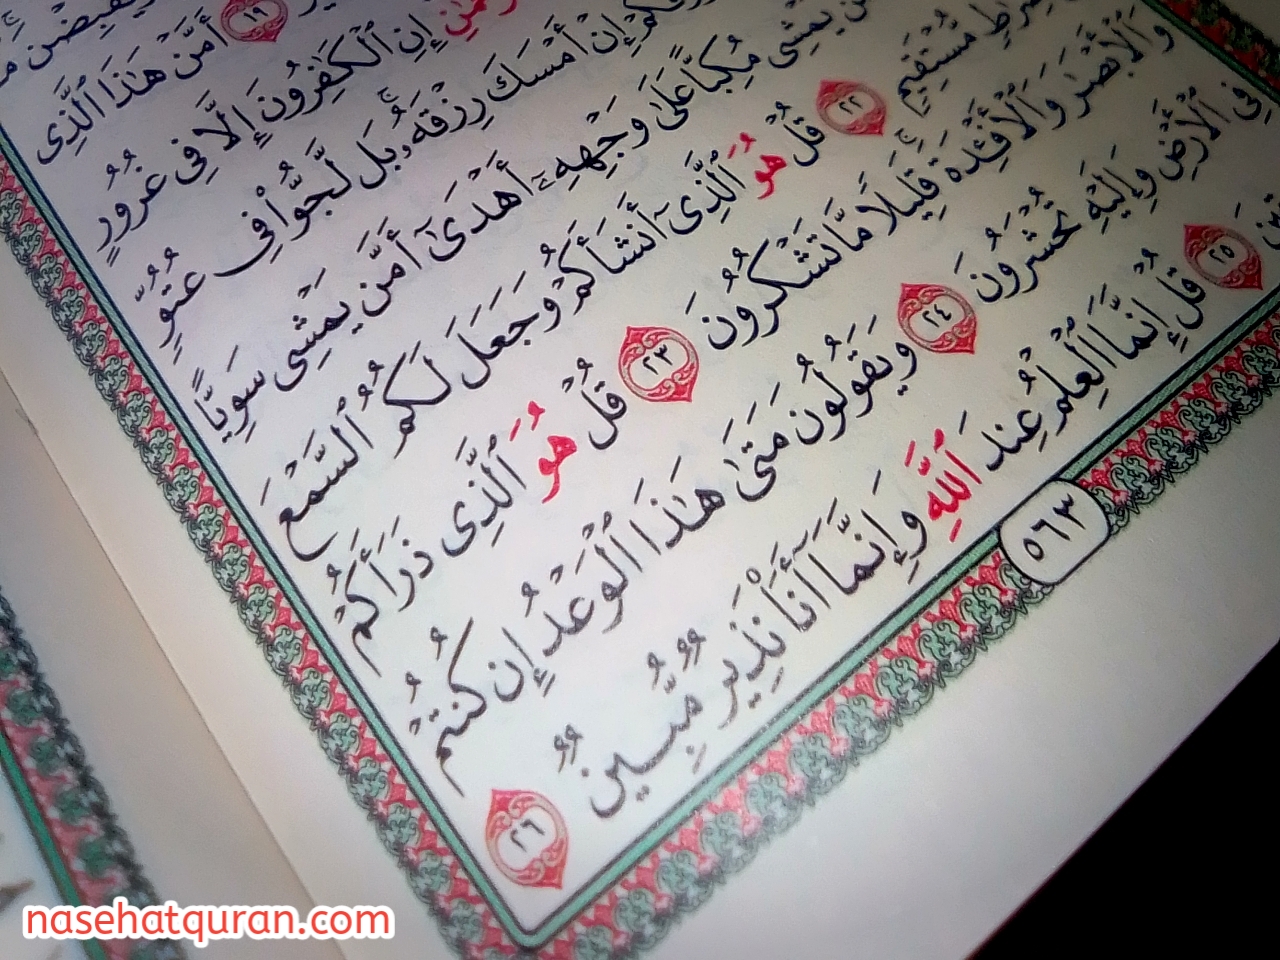 ويقبضن
أَمَّنْ هَٰذَا ٱلَّذِى ١٩
إِنِ ٱلْكَٰفِرُونَ إِلَّا فِى غُرُورٍ
إِنْ أَمْسَكَ رِزْقَهُۥ ۚ بَل لَّجُّوا۟ فِى عُتُوٍّ
يَمْشِى مُكِبًّا عَلَىٰ وَجْهِهِۦٓ أَهْدَىٰٓ أَمَّن يَمْشِى سَوِيًّا
مُّسْتَقِيمٍ ٢٢ قُلْ هُوَ ٱلَّذِىٓ أَنشَأَكُمْ وَجَعَلَ لَكُمُ ٱلسَّمْعَ
وَٱلْأَبْصَٰرَ وَٱلْأَفْـِٔدَةَ ۖ قَلِيلًا مَّا تَشْكُرُونَ ٢٣ قُلْ هُوَ ٱلَّذِى ذَرَأَكُمْ
فِى ٱلْأَرْضِ وَإِلَيْهِ تُحْشَرُونَ ٢٤ وَيَقُولُونَ مَتَىٰ هَٰذَا ٱلْوَعْدُ إِن كُنتُمْ
٢٥ قُلْ إِنَّمَا ٱلْعِلْمُ عِندَ ٱللَّهِ وَإِنَّمَآ أَنَا۠ نَذِيرٌ مُّبِينٌ ٢٦
٥٦٣
nasehatquran.com